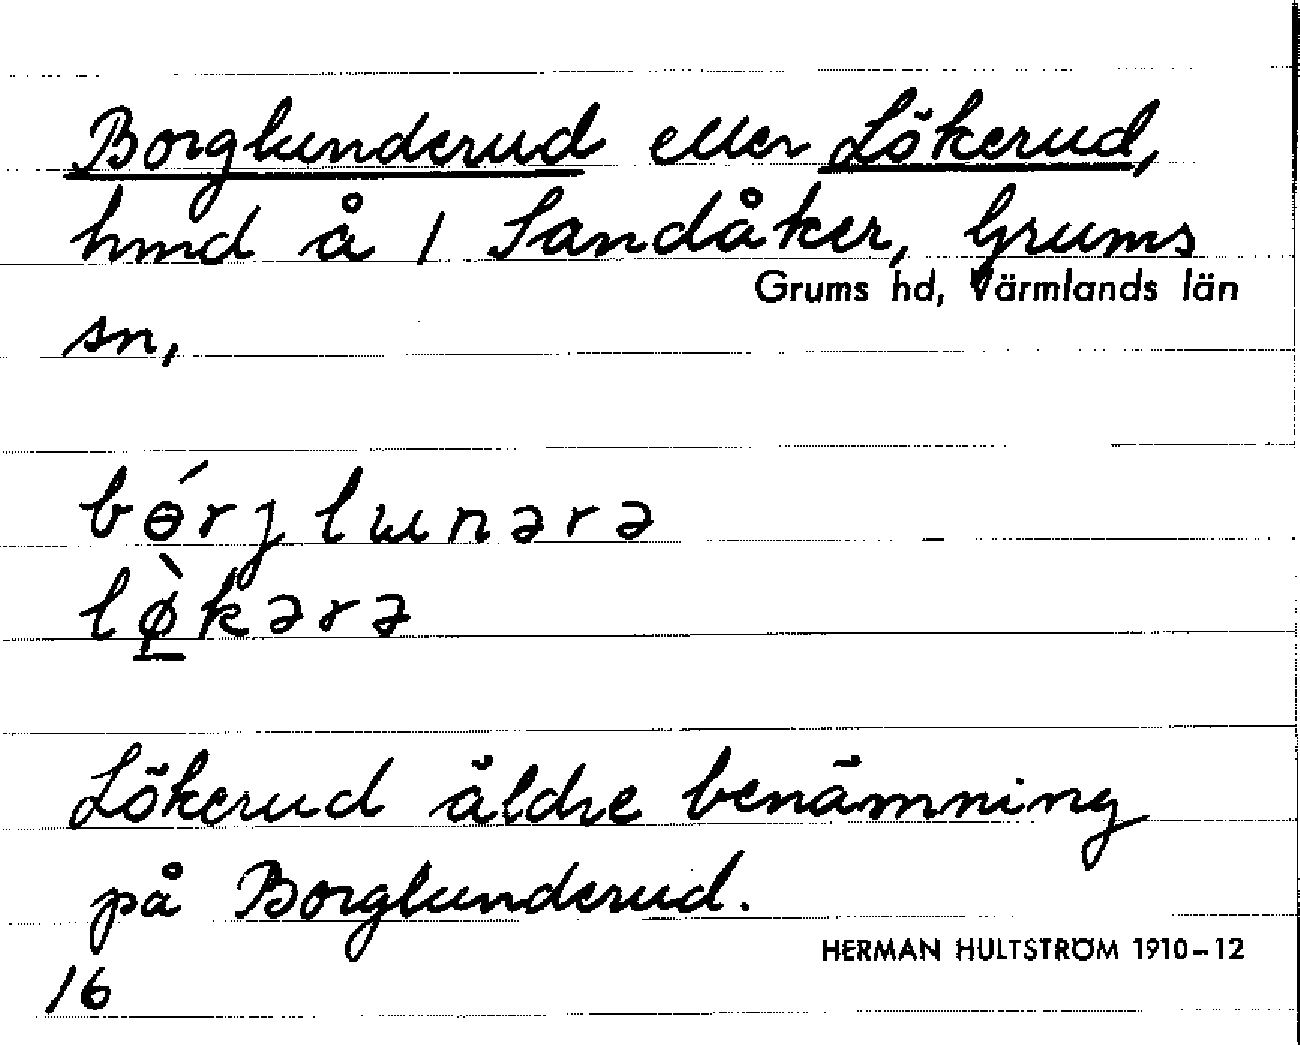 Borglunderud eller Lökerud,
hmd å 1 Sandåker, Grums
Grums hd, Värmlands län
sn,
bǿrȷlɯnərə
lø̠̀kərə
Lökerud äldre benämning
på Borglunderud.
HERMAN HULTSTRÖM 1910–12
16